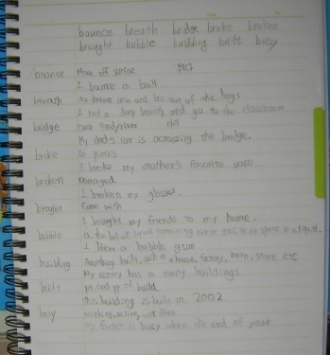 bounce breath bridge broke broken
brought bubble building built busy
bounce Move off surface
I bounce a ball
breath in and out of the lungs.
I had a deep breath and go to the classroom
bridge over road/river
My dad's car is acrossing the bridge.
broke in pieces
I broke my mother's favorite vase.
broken Damaged
I broken my glasses.
brought Came with
I brought my friends to my home.
bubble a ball of liquid containing air or gas
I blow a bubble gum
building built, such a house, factory, barn, store etc
My country has a many buildings.
built pt. and pp. of build
this building is built in 2002
busy working, active, not free
My father is busy when the end of year